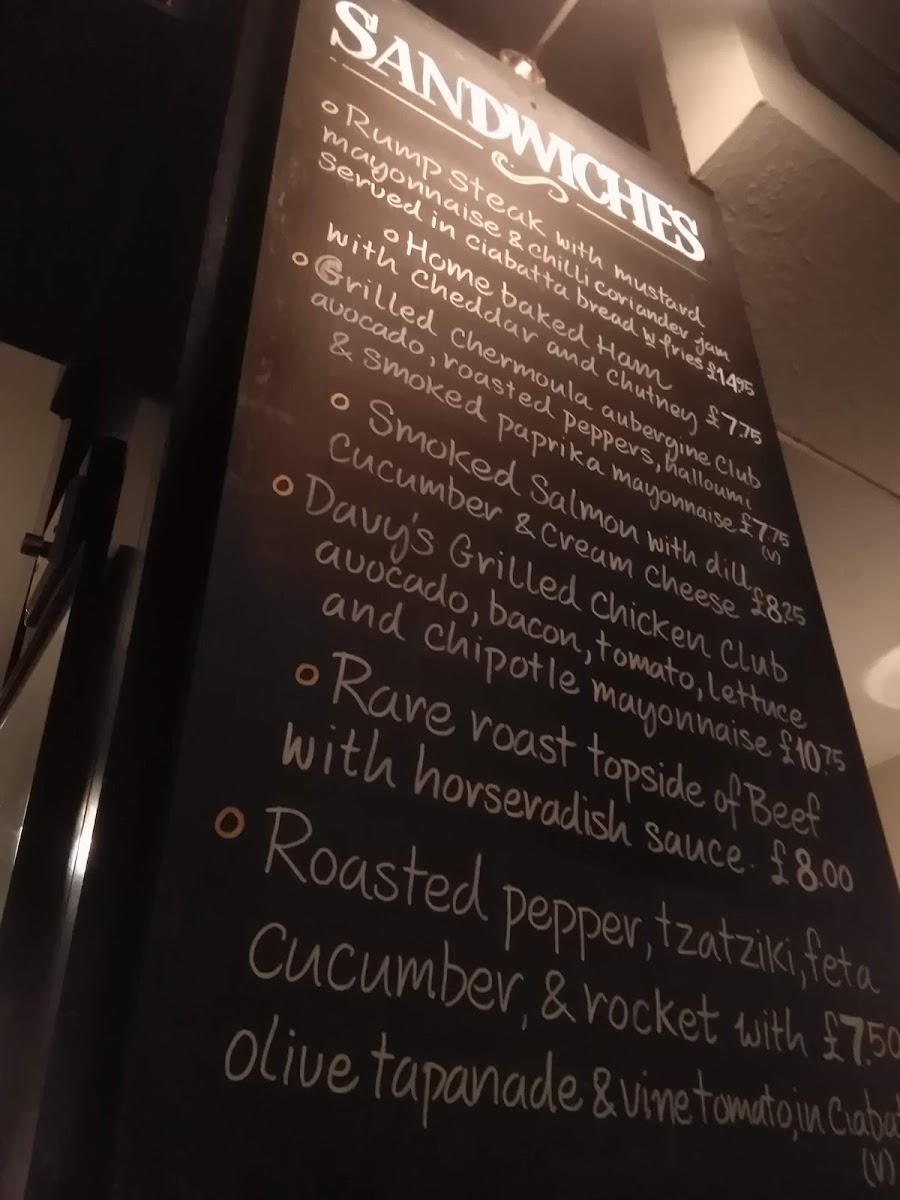 SANDWICHES
Rump steak with mustard
mayonnaise & chilli coriander jam
served in ciabatta bread w fries £14.95
Home baked Ham
with cheddar and chutney £7.75
Grilled chermoula aubergine club
avocado, roasted peppers, halloumi
& smoked paprika mayonnaise £7.75
(v)
Smoked Salmon with dill,
cucumber & cream cheese £8.25
Davy's Grilled Chicken Club
avocado, bacon, tomato, lettuce
and chipotle mayonnaise £10.75
Rare roast topside of Beef
with horseradish sauce. £8.00
Roasted pepper, tzatziki, feta
cucumber, & rocket with £7.50
olive tapanade & vine tomato, in Ciabat
(V)